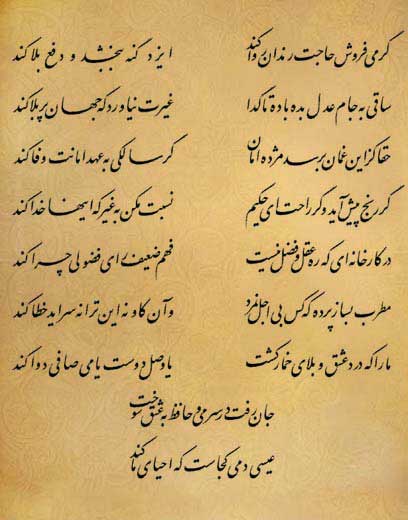 گر می فروش حاجت رندان روا کند ایزد گنه ببخشد و دفع بلا کند
ساقی به جام عدل بده باده تا گدا غیرت نیاورد که جهان پر بلا کند
حقا کز این غمان برسد مژده امان گر سالکی به عهد امانت وفا کند
گر رنج پیش آید و گر راحت ای حکیم نسبت مکن به غیر که اینها خدا کند
در کارخانه ای که ره عقل و فضل نیست فهم ضعیف رای فضولی چرا کند
مطرب بساز پرده که کس بی اجل نمرد وآن کاو نه این ترانه سراید خطا کند
ما را که درد عشق و بلای خمار کشت یا وصل دوست یا می صافی دوا کند
جان رفت در سر می و حافظ به عشق سوخت
عیسی دمی کجاست که احیای ما کند